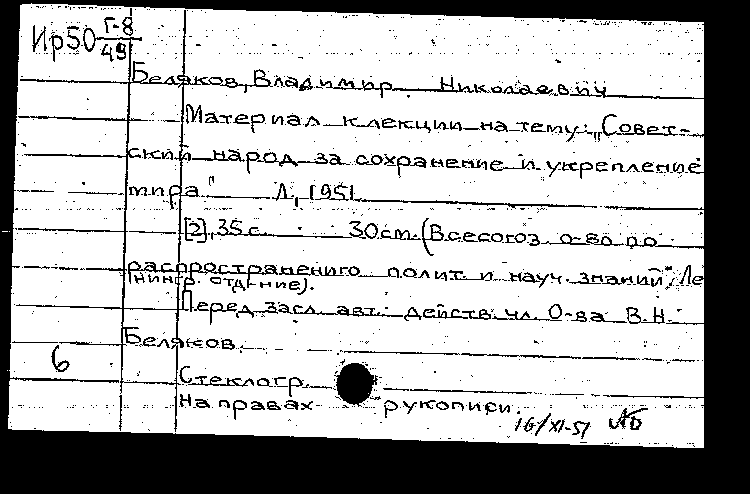 Ир50 Г-8
49
Беляков, Владимир Николаевич
Материал к лекции на тему: „Совет-
ский народ за сохранение и укрепление
мира" Л., 1951
[2], 35 с. 30 см. (Всесоюз. о-во по
распространению полит. и науч. знаний", Ле
нингр. отд-ние).
Перед загл. авт.: действ. чл. О-ва В.Н.
Беляков.
6
Стеклогр.
На правах рукописи.
16/XI-51